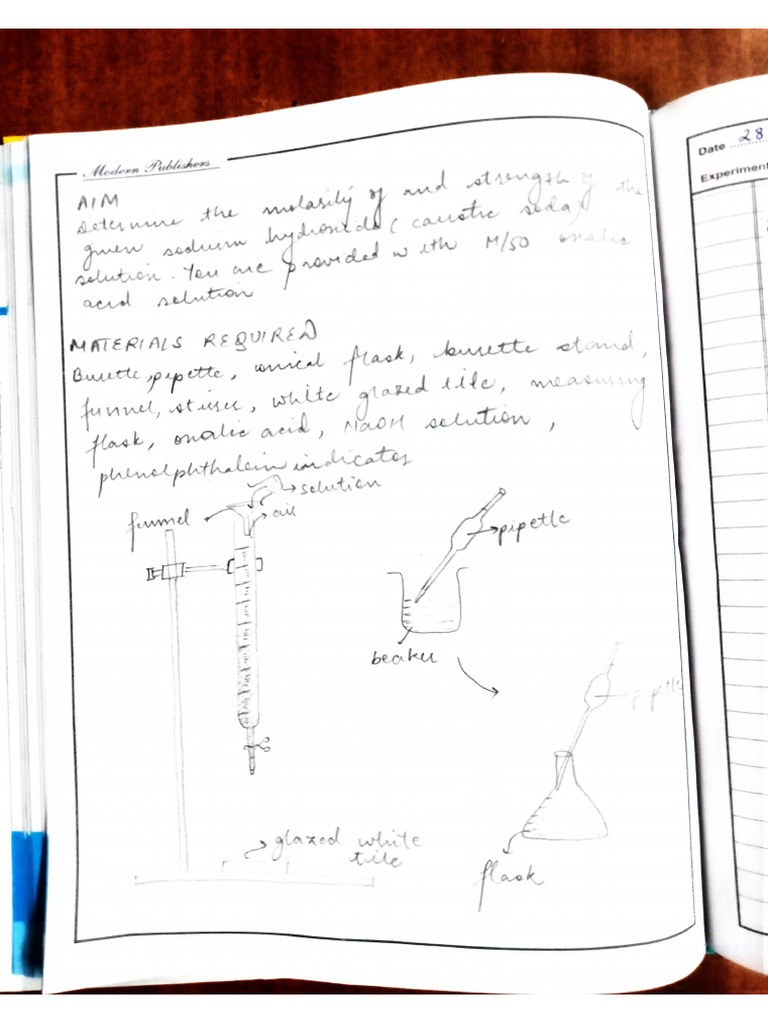 Modern Publishers
Date ...... 28
Experiment
AIM
Determine the molarity of and strength of the
given sodium hydroxide (caustic soda)
solution. You are provided with M/50 oxalic
acid solution
MATERIALS REQUIRED
Burette, pipette, conical flask, burette stand,
funnel, stirrer, white glazed tile, measuring
flask, oxalic acid, NaOH solution,
phenolphthalein indicator
solution
funnel
air
pipette
beaker
pipette
glazed white
tile
flask